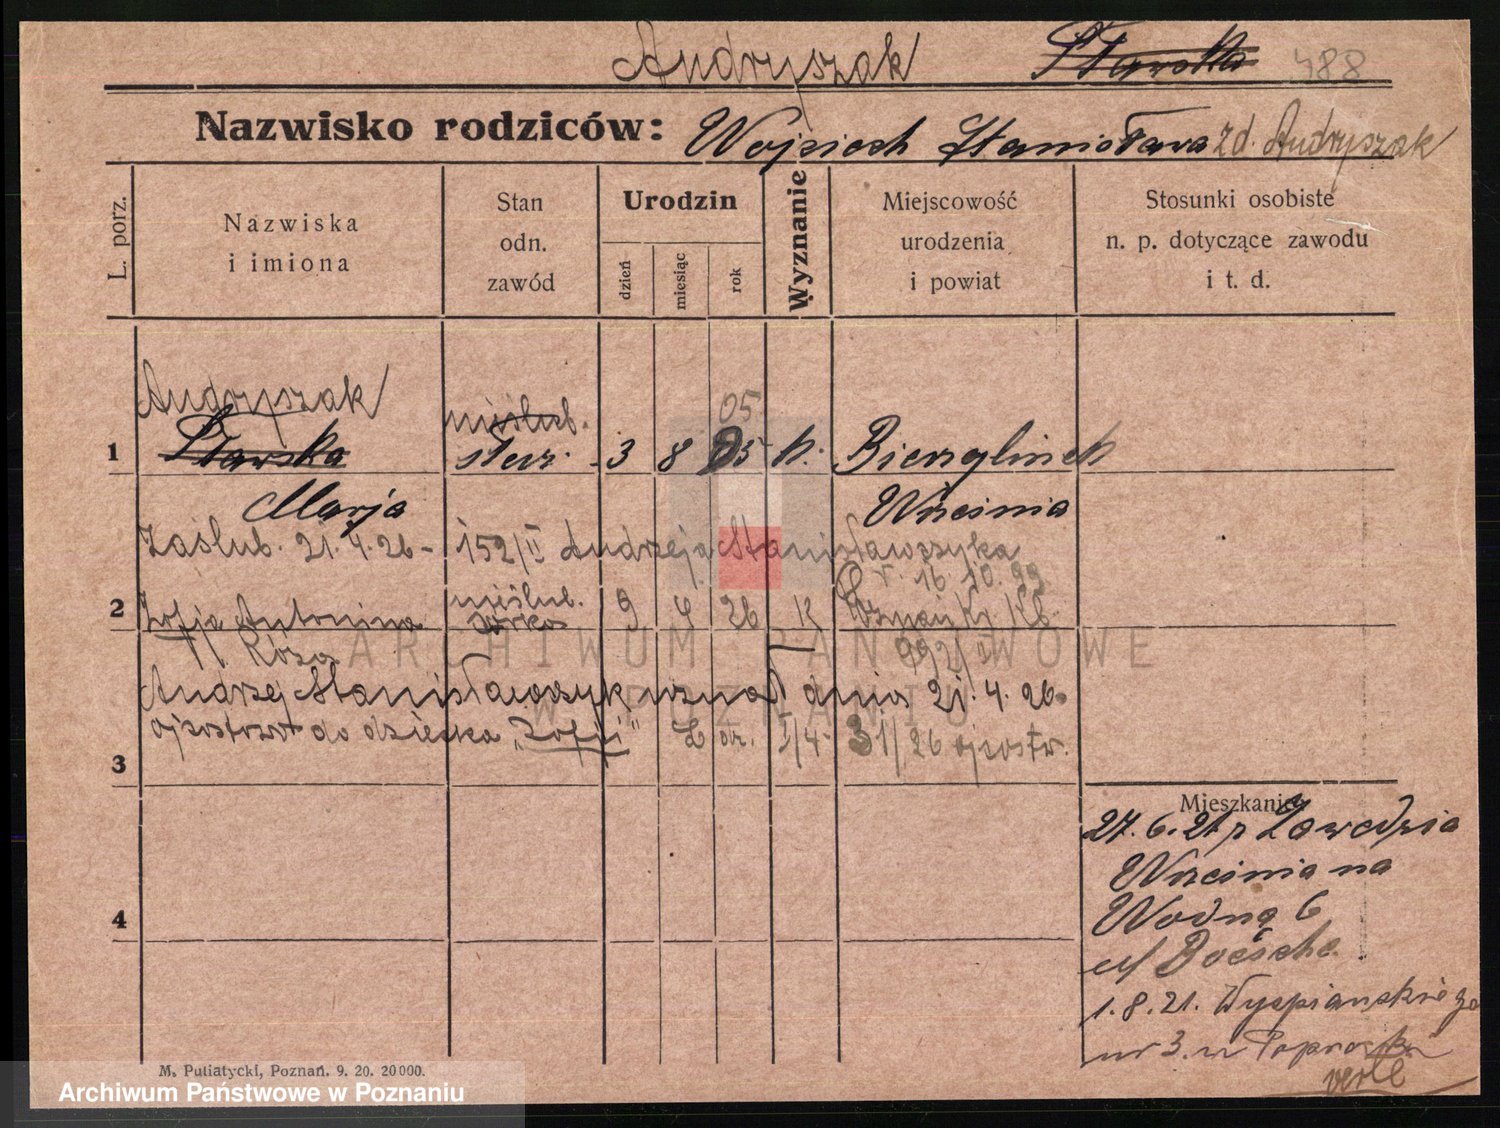 Andryszak Stawska 488
Nazwisko rodziców: Wojciech Stanisława zd. Andryszak
L. porz.
Nazwiska
i imiona
Stan
odn.
zawód
Urodzin
dzień
miesiąc
rok
Wyznanie
Miejscowość
urodzenia
i powiat
Stosunki osobiste
n. p. dotyczące zawodu
i t. d.
Andryszak nieślub. 05
1 Stawska 3 8 05 k. Bierzglinek
Marja Września
Zaślub. 21. 4. 26 - 152/II Andrzeja Stanisławczyka
r. 16. 10. 99
2 Zofja Antonina nieślub. córka 9 4 26 K Poznań Kr. Kb.
Róża 992/II
Andrzej Stanisławczyk uznał dnia 21. 4. 26.
ojcostwo do dziecka "Zofji" Z dz. I/4- 31/26 ojcostw.
3
4
Mieszkanie
27. 6. 21 z Zawodzia
Września na
Wodną 6
1. 8. 21. Wyspiańskiego
nr 3. w
verte
M. Putiatycki, Poznań. 9. 20. 20000.
ARCHIWUM PAŃSTWOWE
W POZNANIU
Archiwum Państwowe w Poznaniu